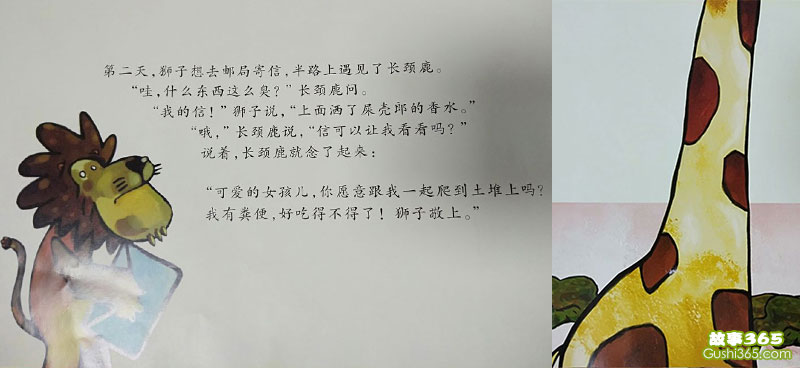 第二天，狮子想去邮局寄信，半路上遇见了长颈鹿。
“哇，什么东西这么臭？”长颈鹿问。
“我的信！”狮子说，“上面洒了屎壳郎的香水。”
“哦，”长颈鹿说，“信可以让我看看吗？”
说着，长颈鹿就念了起来：
“可爱的女孩儿，你愿意跟我一起爬到土堆上吗？
我有粪便，好吃得不得了！狮子敬上。”
故事365
Gushi365.com